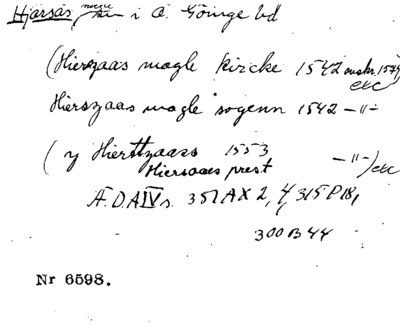 Hjärsås i Ö. Göinge hd
(Hierzaas magle kircke 1542 avskr. 1574 etc
Hierszaas magle sogenn 1542 -"-
(y Hierttzaass 1553 -"-) etc
Hiersaaes prest
Ä.D.A IV s. 351 A X 2, 4, 315 P 18,
300 B 44
Nr 6598.